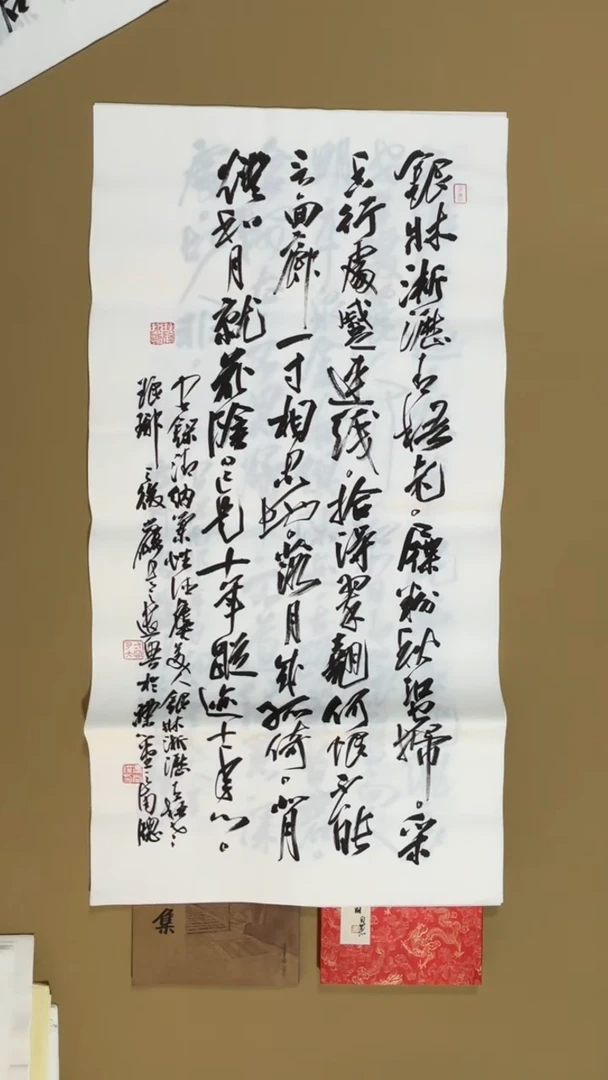 銀牀淅瀝青梧老。屧粉秋蛩掃。采
香行處蹙連錢。拾得翠翹何恨不能
言回廊一寸相思地。落月成孤倚。背
燈和月就花陰。已是十年蹤迹十年心。
錄清納蘭性德虞美人銀牀淅瀝青梧老
琅琊 於 南牕
集